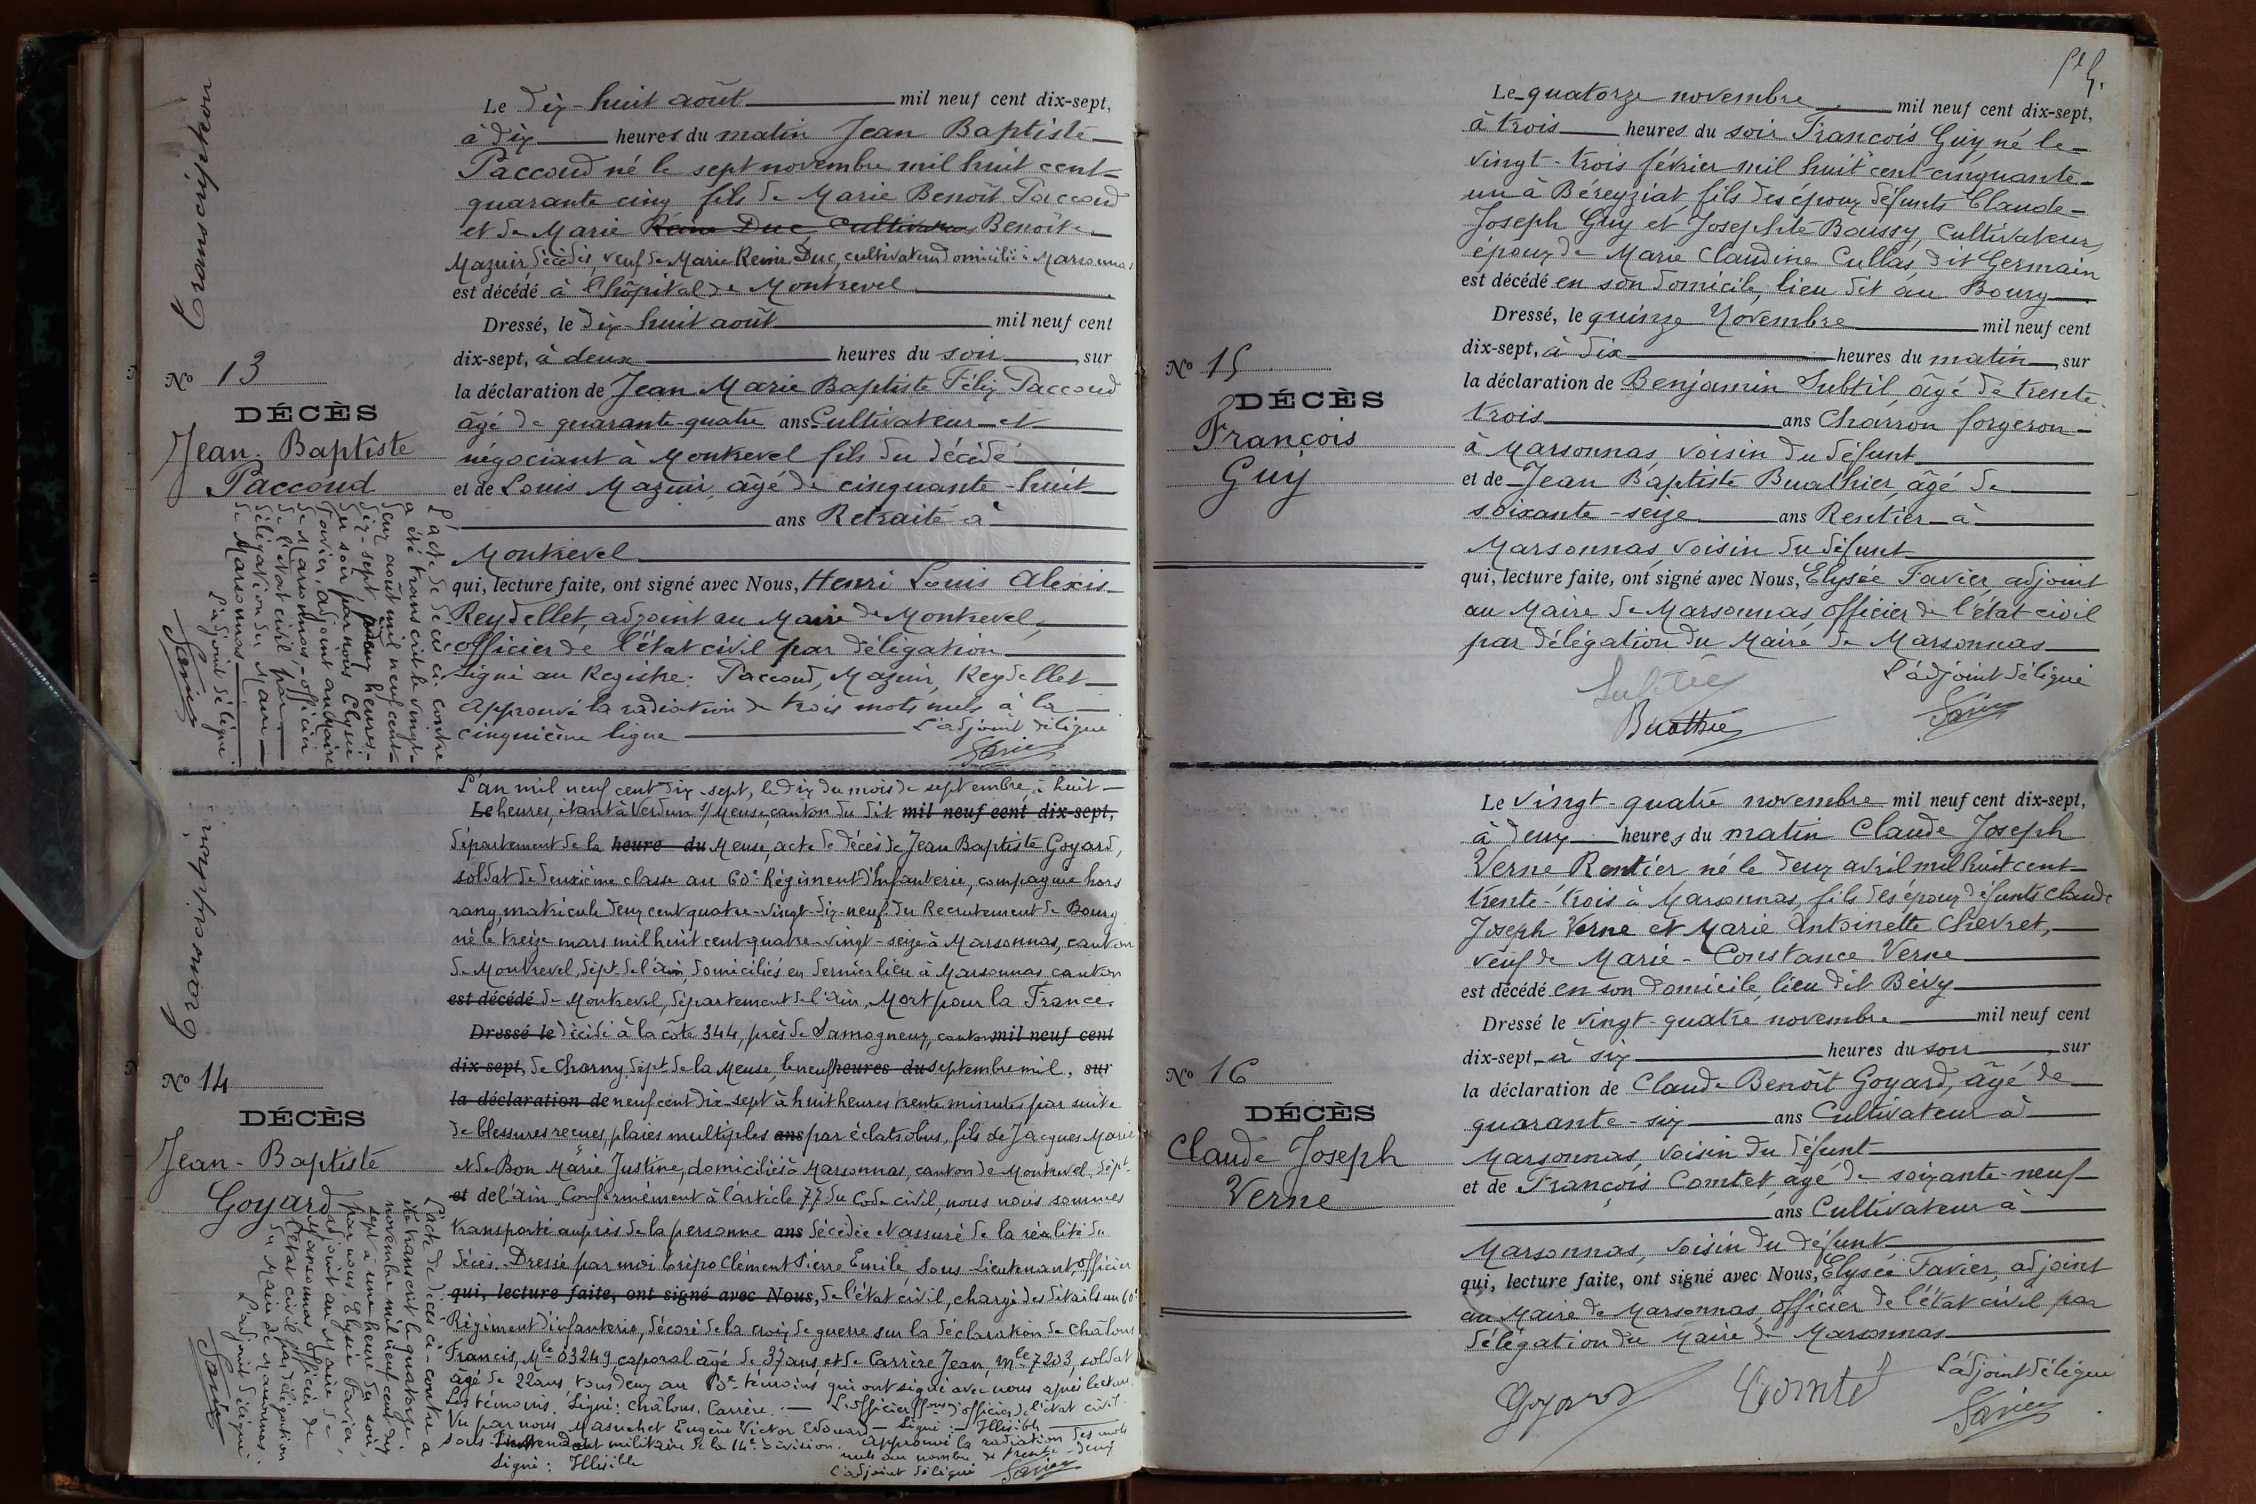 Transcription
Nº 13
DÉCÈS
Jean-Baptiste
Paccoud
L'acte de décès ci-contre
a été transcrit le vingt-
deux août mil neuf cent
dix-sept, à deux heures
du soir par nous Elysée
Favier, adjoint au Maire
de Marsonnas, officier
de l'état civil par
délégation du Maire
de Marsonnas
L'adjoint délégué.
Favier
Le dix-huit août mil neuf cent dix-sept,
à dix heures du matin Jean Baptiste
Paccoud né le sept novembre mil huit cent
quarante cinq fils de Marie Benoît Paccoud
et de Marie Reine Duc, Cultivateur Benoîte
Mazuir, décédés, veuf de Marie Reine Duc, cultivateur domicilié à Marsonnas
est décédé à l'hôpital de Montrevel
Dressé, le dix-huit août mil neuf cent
dix-sept, à deux heures du soir, sur
la déclaration de Jean Marie Baptiste Félix Paccoud
âgé de quarante-quatre ans Cultivateur et
négociant à Montrevel fils du décédé
et de Louis Mazuir, âgé de cinquante-huit
ans Retraité à
Montrevel
qui, lecture faite, ont signé avec Nous, Henri Louis Alexis
Reydellet, adjoint au Maire de Montrevel,
officier de l'état civil par délégation
Signé au Registre: Paccoud, Mazuir, Reydellet
Approuvé la radiation de trois mots nuls à la
cinquième ligne L'adjoint délégué
Favier
Transcription
Nº 14
DÉCÈS
Jean-Baptiste
Goyard
L'acte de décès ci-contre a
été transcrit le quatorze
novembre mil neuf cent dix
sept à une heure du soir,
par nous, Elysée Favier,
adjoint au Maire de
Marsonnas officier de
l'état civil par délégation
du Maire de Marsonnas.
L'adjoint délégué
Favier
L'an mil neuf cent dix-sept, le dix du mois de septembre, à huit
Le heures, étant à Verdun s/ Meuse, canton du dit mil neuf cent dix-sept,
département de la heure du Meuse, acte de décès de Jean Baptiste Goyard,
soldat de deuxième classe au 60e Régiment d'Infanterie, compagnie hors
rang, matricule deux cent quatre-vingt-dix-neuf du Recrutement de Bourg
né le treize mars mil huit cent quatre-vingt-seize à Marsonnas, canton
de Montrevel, dépt de l'Ain, domiciliés en dernier lieu à Marsonnas canton
est décédé de Montrevel, département de l'Ain, Mort pour la France.
Dressé le décédé à la côte 344, près de Samogneux, canton mil neuf cent
dix-sept, de Charny, dépt de la Meuse, le neuf heures du septembre mil, sur
la déclaration de neuf cent dix-sept à huit heures trente minutes par suite
de blessures reçues plaies multiples ans par éclats obus, fils de Jacques Marie
et de Bon Marie Justine, domiciliés à Marsonnas, canton de Montrevel, dépt
et de l'Ain. Conformément à l'article 77 du Code civil, nous nous sommes
transporté auprès de la personne ans décédée et assuré de la réalité du
décès. Dressé par moi Crépo Clément Pierre Emile, Sous Lieutenant, officier
qui, lecture faite, ont signé avec Nous, de l'état civil, chargé des détails au 60e
Régiment d'infanterie, décoré de la croix de guerre sur la déclaration de Châlons
Francis, Mle 03249, caporal âgé de 37 ans et de Carrère Jean, Mle 7203, soldat
âgé de 22 ans, tous deux au 60e témoins qui ont signé avec nous après lecture
Les témoins. Signé: Châlons, Carrère. — L'officier d'officier de l'état civil
Vu par nous Masuchet Eugène Victor Edouard Signé: Illisible
sous Intendant militaire de la 14e division. Approuvé la radiation des mots
nuls au nombre de trente-deux
Signé: Illisible L'adjoint délégué Favier
Le quatorze novembre mil neuf cent dix-sept,
à trois heures du soir François Guy né le
vingt-trois février mil huit cent cinquante-
un à Béreyziat, fils des époux défunts Claude-
Joseph Guy et Josephte Boussy, Cultivateur,
époux de Marie Claudine Cullas, dit Germain
est décédé en son domicile, lieu dit au Bourg
Dressé, le quinze Novembre mil neuf cent
dix-sept, à dix heures du matin, sur
la déclaration de Benjamin Subtil, âgé de trente
trois ans Charron forgeron
à Marsonnas, voisin du défunt
et de Jean Baptiste Buathier, âgé de
soixante-seize ans Rentier à
Marsonnas, voisin du défunt
qui, lecture faite, ont signé avec Nous, Elysée Favier, adjoint
au Maire de Marsonnas, officier de l'état civil
par délégation du Maire de Marsonnas
L'adjoint délégué
Subtil
Buathier
Favier
Nº 15
DÉCÈS
François
Guy
Le vingt-quatre novembre mil neuf cent dix-sept,
à deux heures du matin Claude Joseph
Verne Rentier né le deux avril mil huit cent
trente-trois à Marsonnas, fils des époux défunts Claude
Joseph Verne et Marie Antoinette Chevret,
veuf de Marie-Constance Verne
est décédé en son domicile, lieu dit Bévy
Dressé le vingt-quatre novembre mil neuf cent
dix-sept, à six heures du soir, sur
la déclaration de Claude Benoît Goyard, âgé de
quarante-six ans Cultivateur à
Marsonnas, voisin du défunt
et de François Comtet, âgé de soixante-neuf
ans Cultivateur à
Marsonnas, voisin du défunt
qui, lecture faite, ont signé avec Nous, Elysée Favier, adjoint
au Maire de Marsonnas, officier de l'état civil par
délégation du Maire de Marsonnas
L'adjoint délégué
Goyard
Comtet
Favier
Nº 16
DÉCÈS
Claude Joseph
Verne